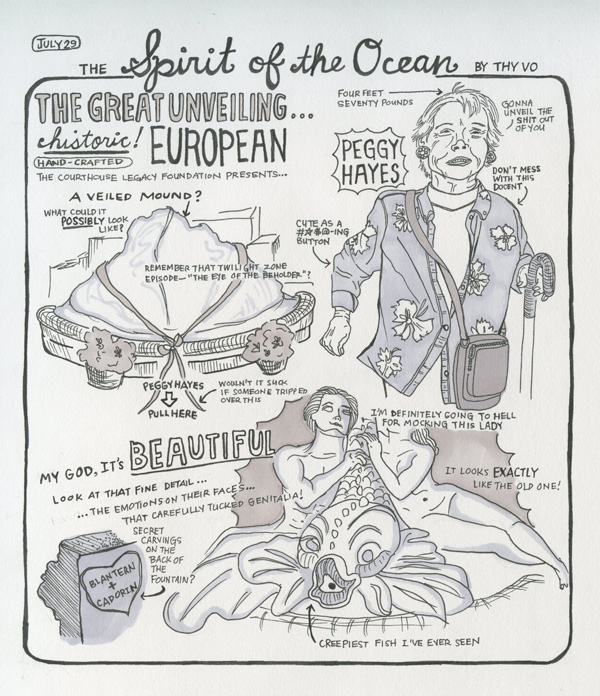 JULY 29
THE Spirit of the Ocean BY THY VO
THE GREAT UNVEILING...
historic! EUROPEAN
HAND-CRAFTED
THE COURTHOUSE LEGACY FOUNDATION PRESENTS...
A VEILED MOUND?
WHAT COULD IT
POSSIBLY LOOK
LIKE?
REMEMBER THAT TWILIGHT ZONE
EPISODE— "THE EYE OF THE BEHOLDER"?
PEGGY HAYES
PULL HERE
WOULDN'T IT SUCK
IF SOMEONE TRIPPED
OVER THIS
FOUR FEET
SEVENTY POUNDS
GONNA
UNVEIL THE
SHIT OUT
OF YOU
PEGGY
HAYES
DON'T MESS
WITH THIS
DOCENT
CUTE AS A
#*$@-ING
BUTTON
MY GOD, IT'S BEAUTIFUL
LOOK AT THAT FINE DETAIL...
...THE EMOTIONS ON THEIR FACES...
THAT CAREFULLY TUCKED GENITALIA!
I'M DEFINITELY GOING TO HELL
FOR MOCKING THIS LADY
IT LOOKS EXACTLY
LIKE THE OLD ONE!
SECRET
CARVINGS
ON THE
BACK OF
THE
FOUNTAIN?
BLANTERN
+
CADORIN
CREEPIEST FISH I'VE EVER SEEN